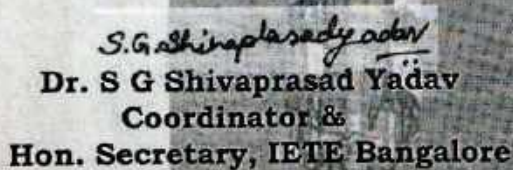 S.G.Shivaprasadyadav
Dr. S G Shivaprasad Yadav
Coordinator &
Hon. Secretary, IETE Bangalore